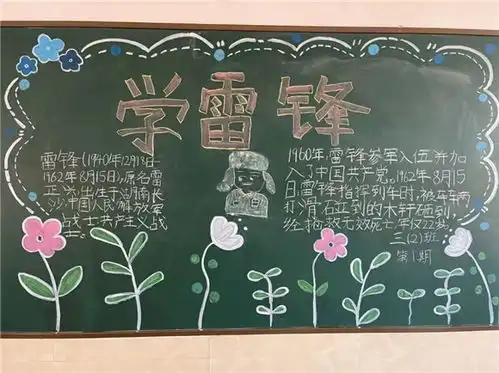 学雷锋
雷锋(1940年12月18日—
1962年8月15日),原名雷
正兴,出生于湖南长
沙,中国人民解放军
战士共产主义战
士。
1960年,雷锋参军入伍并加
入了中国共产党。1962年8月15
日雷锋指挥到车时,被车车两
打滑石立到的木轩砸到,
经抢救无效死亡,年仅22岁。
三(2)班
第1期